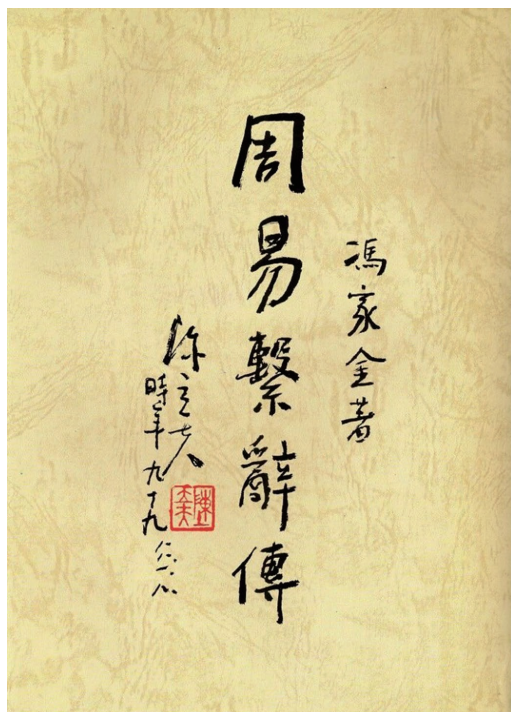 馮家金著
周易繫辭傳
陳立夫
時年九十九